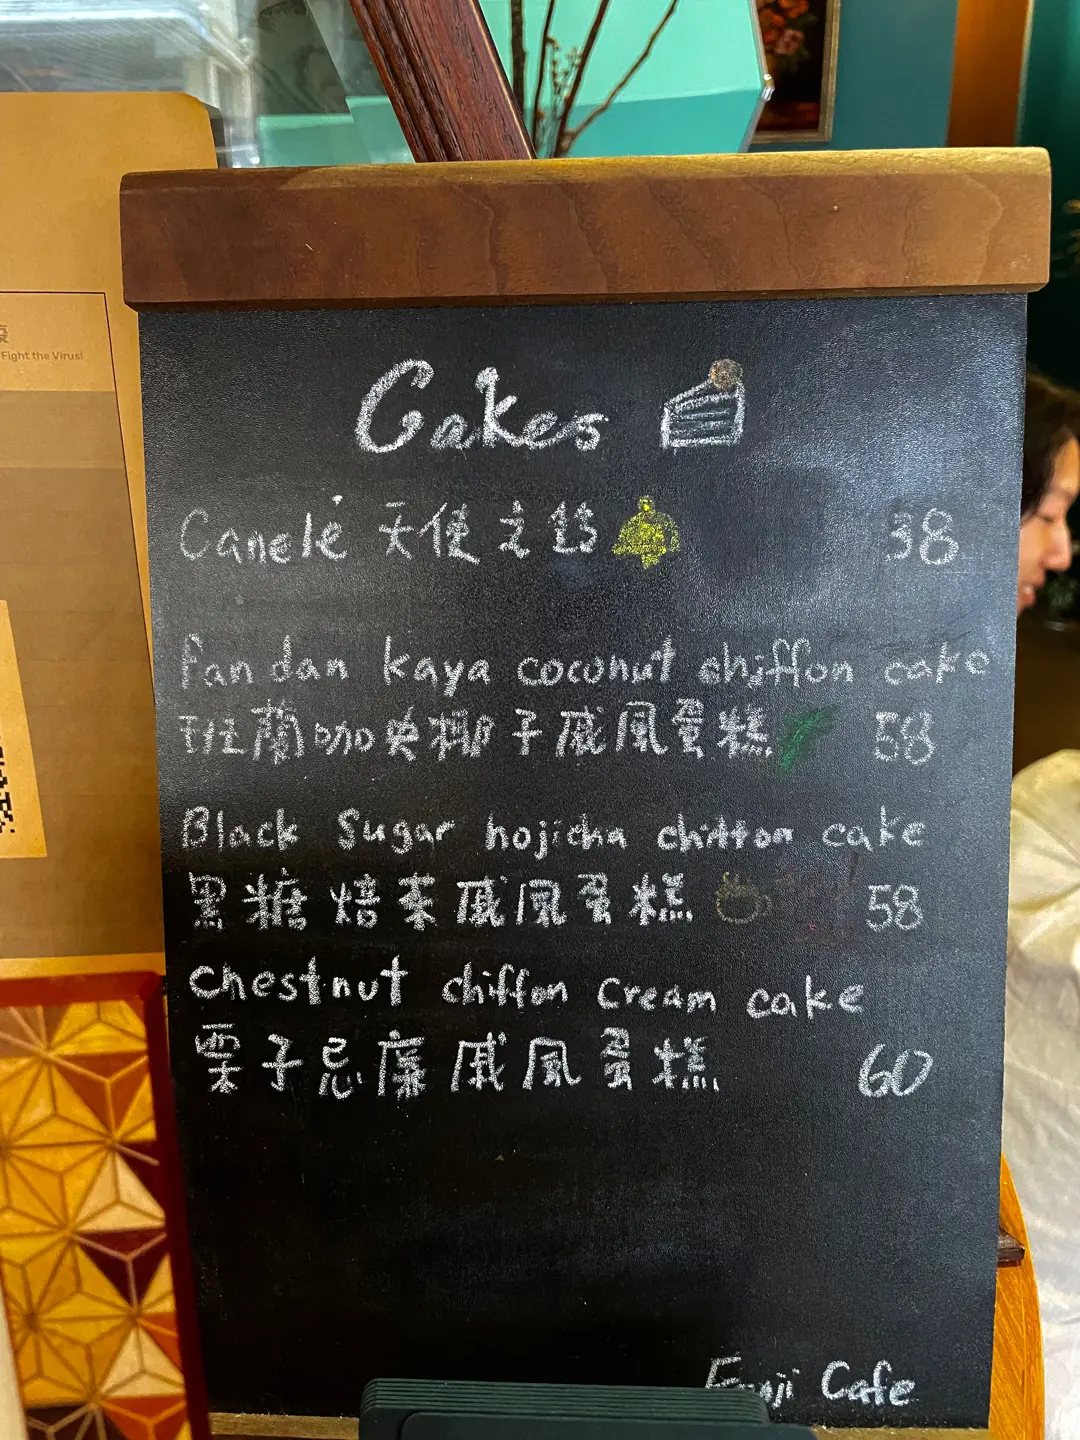 疫
Fight the Virus!
Cakes
Canelé 天使之鈴 38
Pandan kaya coconut chiffon cake
班蘭咖央椰子戚風蛋糕 58
Black Sugar hojicha chiffon cake
黑糖焙茶戚風蛋糕 58
Chestnut chiffon cream cake
栗子忌廉戚風蛋糕 60
Cafe